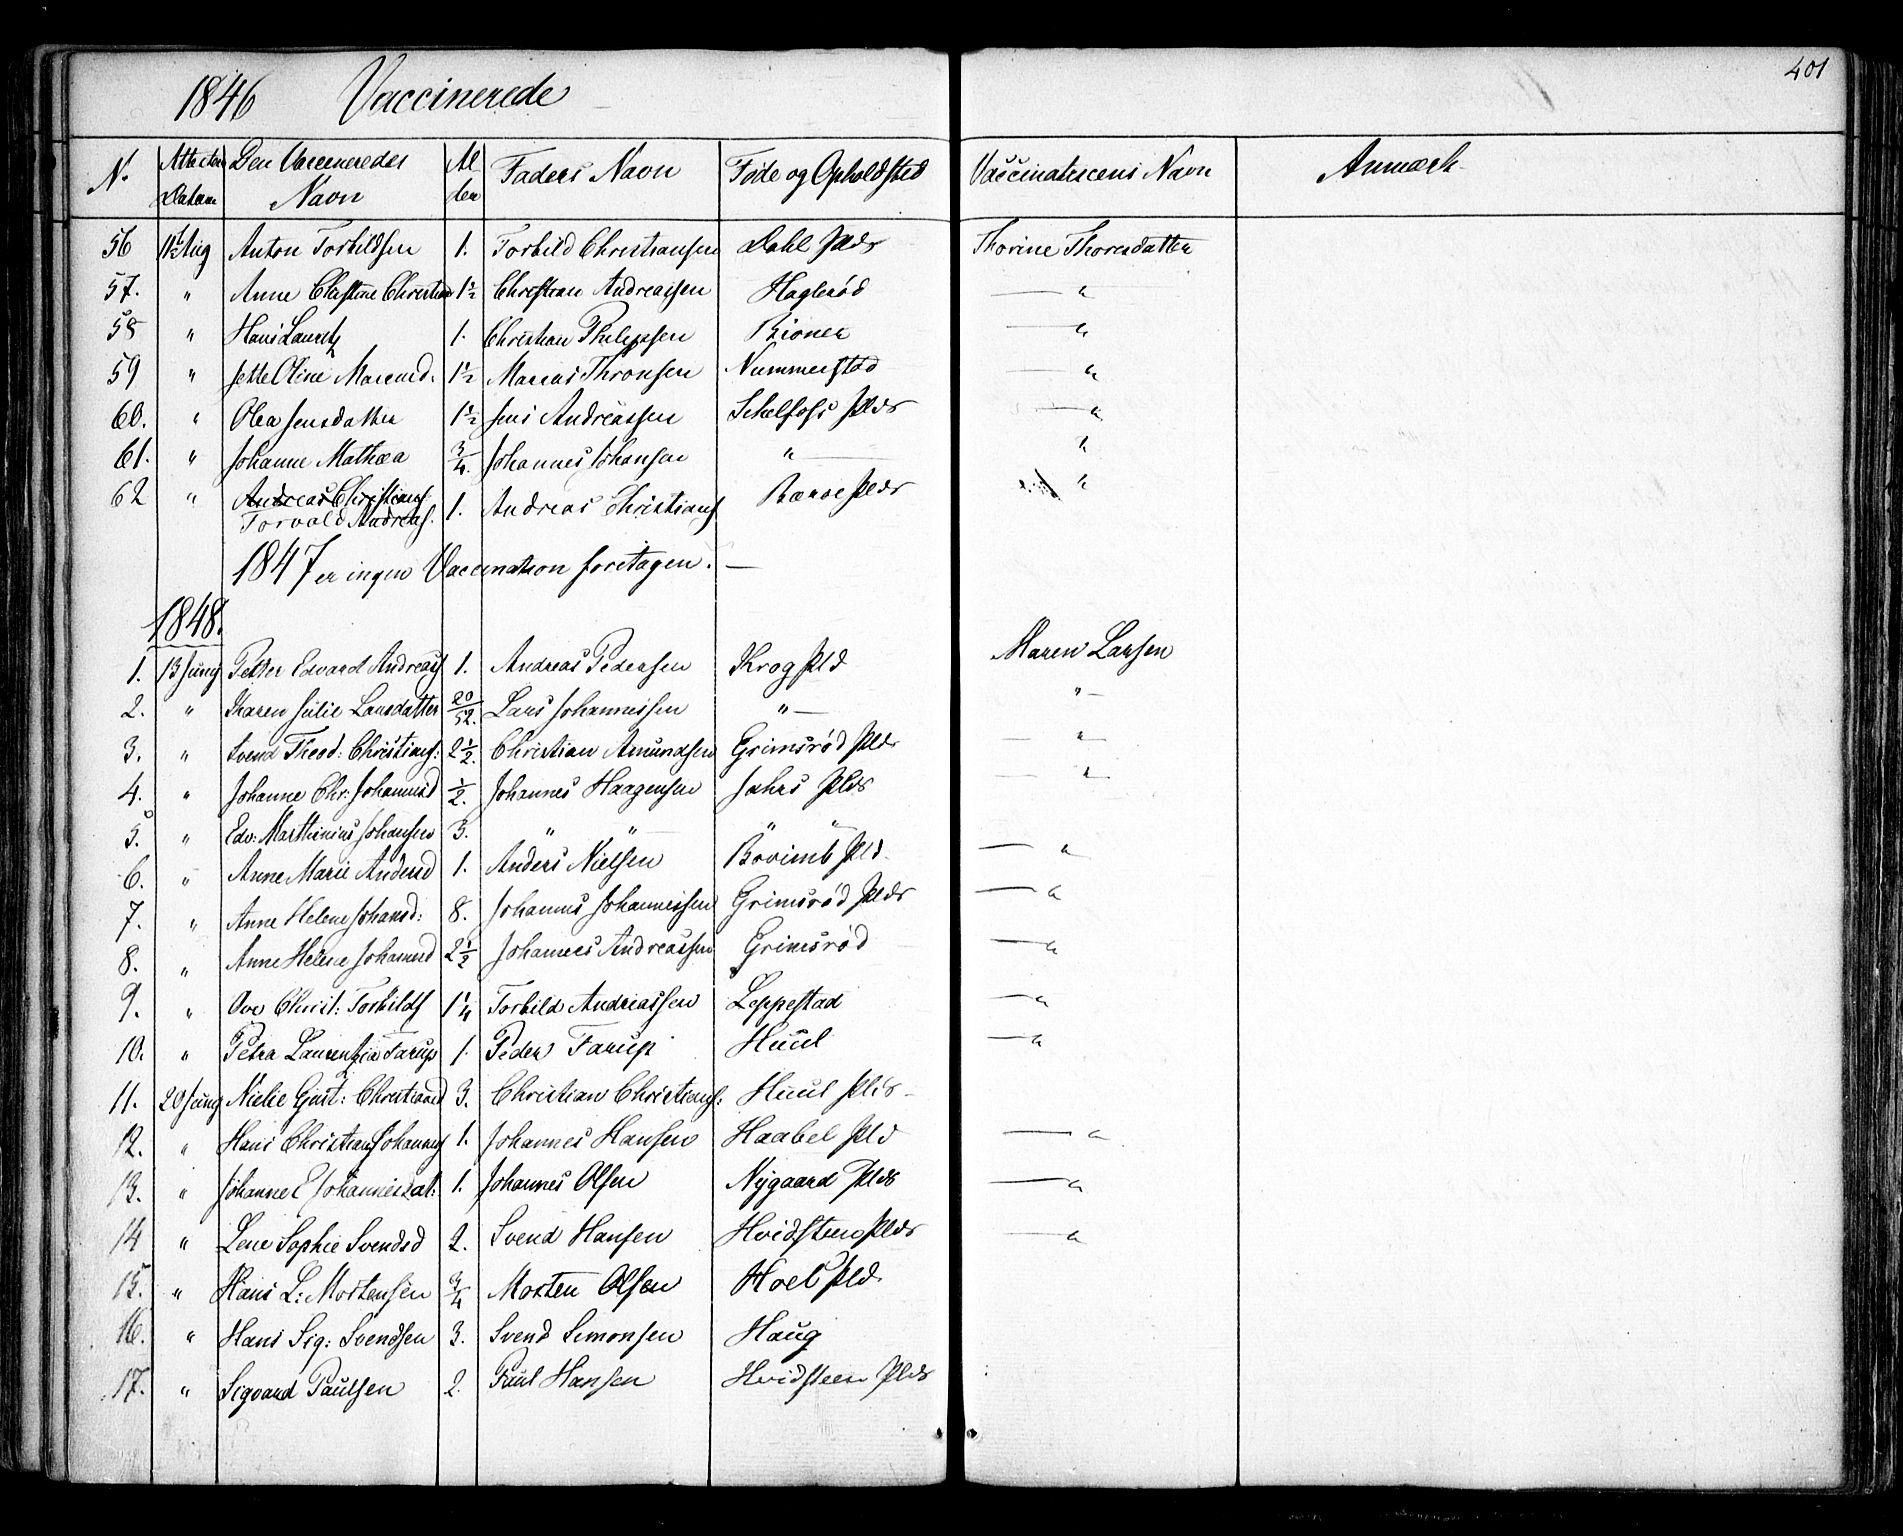 401
1846 Vaccinerede
N. Attestens Datum Den Vaccineredes Navn Alder Faders Navn Føde og Opholdsted Vaccinateurens Navn Anmærk
56 Aug Anton Torkildsen 1. Torkild Christiansen Dahl Plds Thorine Thoresdatter
57. " Anne Christine Christian 1½ Christian Andreassen Haglerød — "
58 " Hans Lauritz 1. Christian Philipsen Bioner — "
59 " Jette Oline Marcusd. 1½ Marcus Thronsen Nummerstad — "
60. " Olea Jensdatter 1½ Jens Andreassen Schelfoss Plds — "
61. " Johanne Mathea ¾. Johannes Johansen " — "
62 " Andreas Christians 1. Andreas Christians Plds "
Torvald Andreas.
1847 er ingen Vaccination foretagen. —
1848.
1. 13 Juny Petter Edvard Andreas 1. Andreas Pedersen Krog Pld Maren Larsen
2. " Karen Julie Larsdatter 20/52. Lars Johannessen " — "
3. " Svend Theod: Christians: 2½ Christian Amundsen Grimsrød Plds — "
4. " Johanne Chr: Johannesd ½. Johannes Haagensen Jahrs Plds — "
5. " Edv: Marthinius Johansen 3. " " " "
6. " Anne Marie Andersd 1. Anders Nielsen Pld. — "
7. " Anne Helene Johansd: 8. Johannes Johannessen Grimsrød Plds — "
8. " Anne Helene Johannesd 2½ Johannes Andreassen Grimsrød — "
9. " Ove Christ: Torkilds 1¼ Torkild Andreassen Leppestad — "
10. " Petra Laurentzia Farup 1. Peder Farup Huul — "
11. 20 Juny Nielie Gust: Christiansd 3. Christian Christians: Huul Plds —
12. " Hans Christian Johannes 1. Johannes Hansen Haabel Pld — "
13. " Johanne E Johannesdat: 1. Johannes Olsen Nygaard Plds — "
14 " Lene Sophie Svendsd 2. Svend Hansen Hvidsteen Plds — "
15. " Hans L: Mortensen ¾ Morten Olsen Hoel Pld
16. " Hans Sig: Svendsen 3. Svend Simonsen Haug
17. " Sigvard Paulsen 2. Paul Hansen Hvidsteen Plds